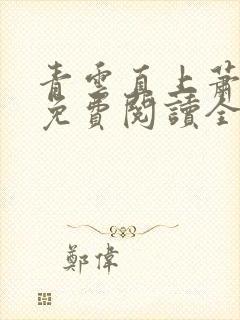 青雲直上蕭
免費閱讀全
鄭偉